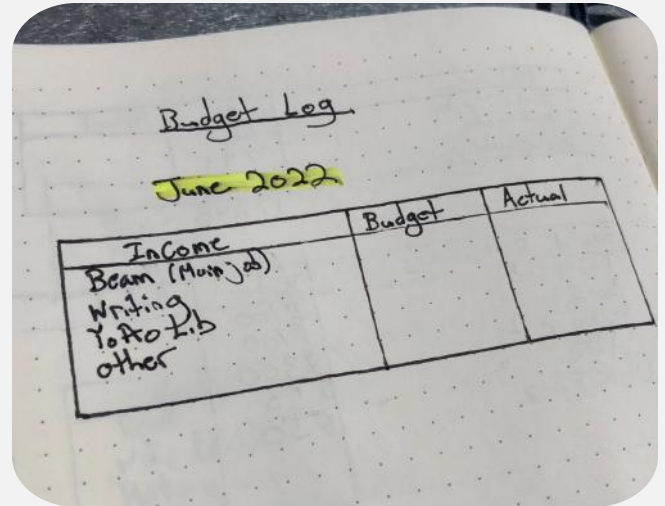 Budget Log
June 2022
Income Budget Actual
Beam (Main job)
Writing
Lib
other